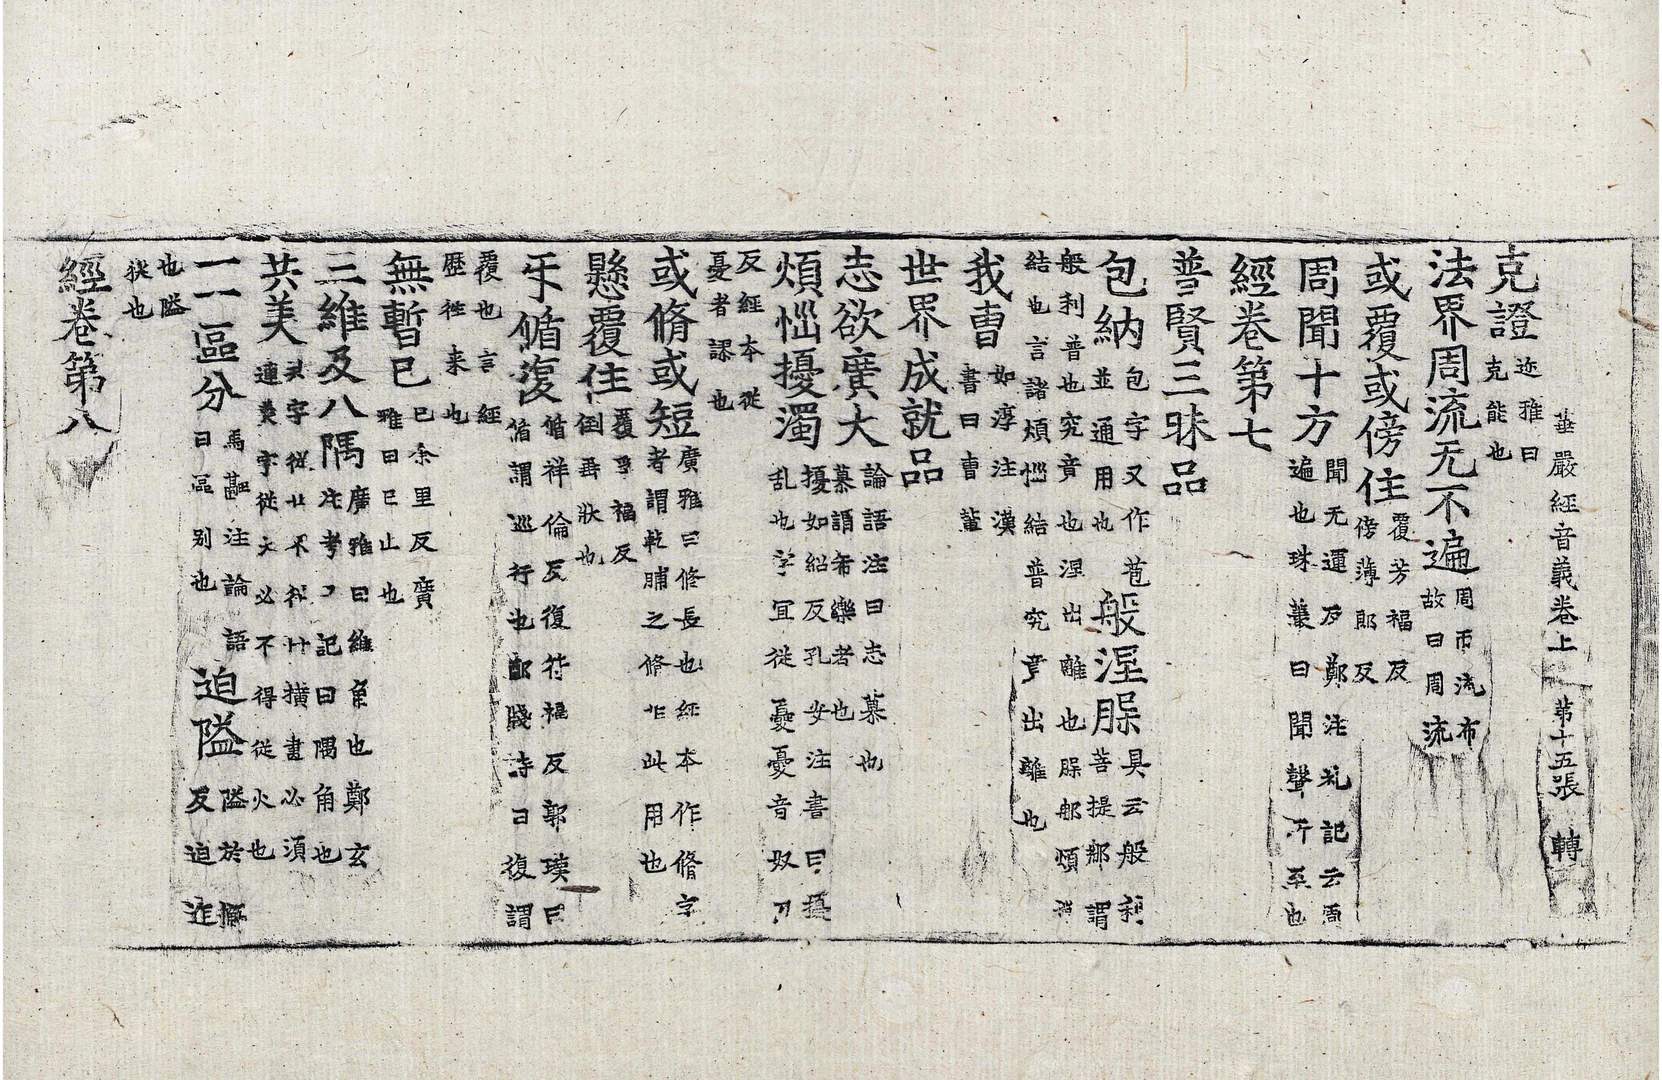 華嚴經音義卷上 第十五張 轉
克證 迩雅曰克能也
法界周流无不遍 周帀流布故曰周流
或覆或傍住 覆芳福反傍薄郎反
周聞十方 聞无運反鄭注礼記云周遍也珠叢曰聞聲所至也
經卷第七
普賢三昧品
包納 包字又作苞並通用也 般涅脲 具云般利菩提那謂
般利普也究音也涅出離也脲那煩
結也言諸煩惱結普究竟出離也
我曺 如淳注漢書曰曺輩
世界成就品
志欲廣大 論語注曰志慕也慕謂希樂者也
煩惱擾濁 擾如紹反孔安注書曰擾乱也字冝從憂憂音奴刀
反經本從憂者謬也
或脩或短 廣雅曰修長也經本作脩字者謂乾脯之脩非此用也
懸覆住 覆孚福反倒垂狀也
乎循復 循祥倫反復符福反郭璞曰循謂巡行也鄭牋詩曰復謂
覆也言經歷往来也
無暫已 已余里反廣雅曰已止也
三維及八隅 廣雅曰維角也鄭玄注考工記曰隅角也
共美 共字從廿不從廾橫畫必須連羙字從大必不得從火也
一一區分 馬融注論語曰區别也 迫隘 隘於懈反迫迮
也隘狹也
經卷第八